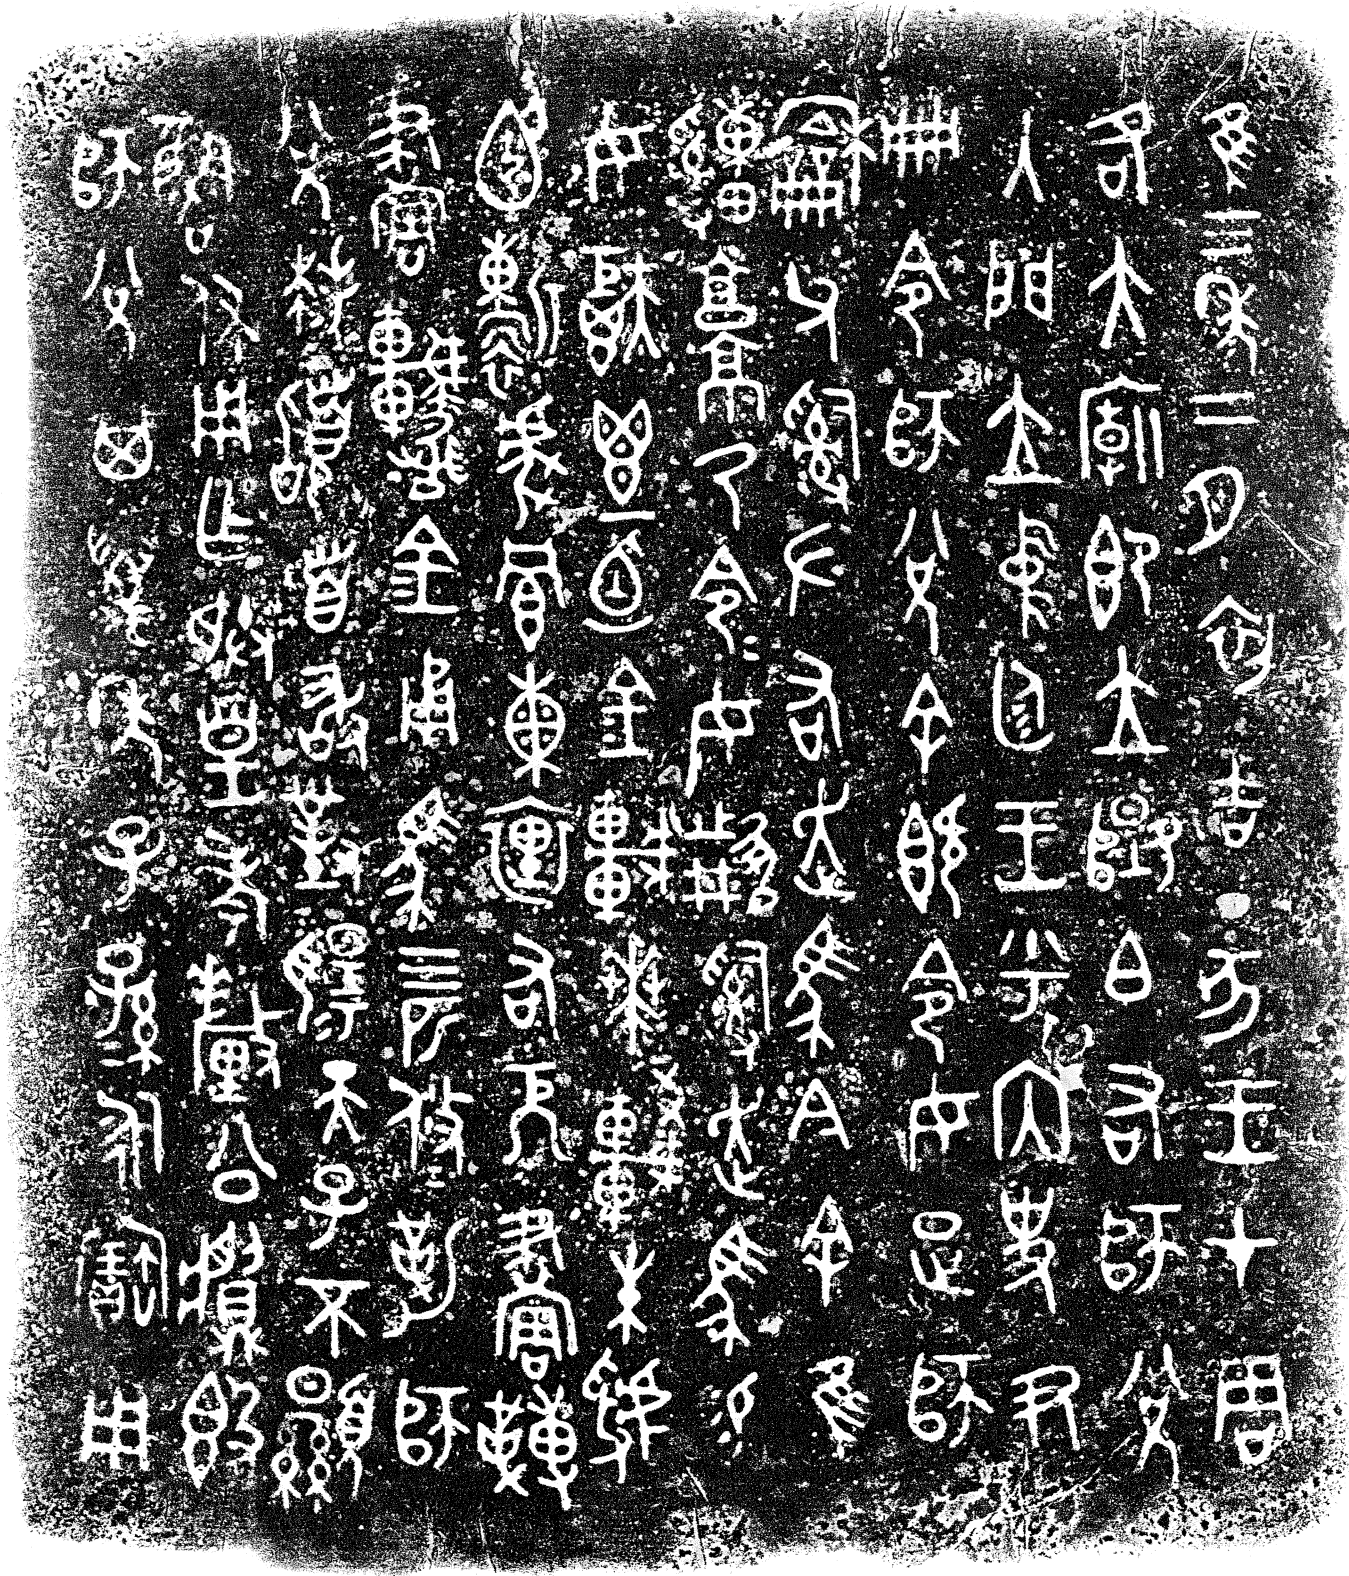 隹三年二月初吉丁亥王才周
各大廟即立𨟻白右師兌
入門立中廷王乎內史尹
冊令師兌余既令女疋師
龢父𤔲左右走馬今余隹
𤕌𩫨乃令令女𤔲走馬易
女秬鬯一卣金車𠦪較朱虢
靳虎冟熏裏右厄畫𩌏
畫𨍱金甬馬四匹攸勒師
兌拜𩒨首敢對揚天子不顯
魯休用乍朕皇考釐公𩰫簋
師兌其萬年子子孫孫永寶用